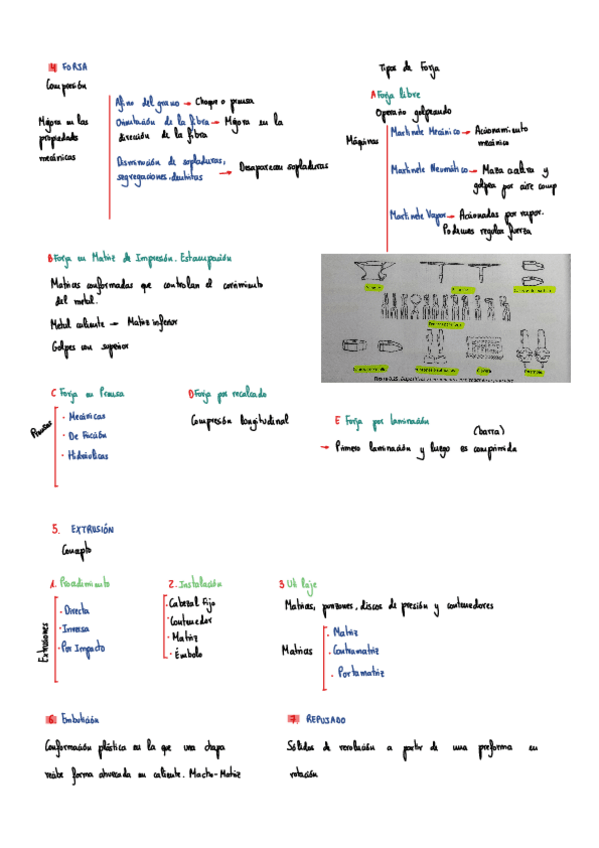 4 FORJA
Compresión
Mejora en las
propiedades
mecánicas
Afino del grano → Choque o prensa
Orientación de la fibra → Mejora en la
dirección de la fibra
Disminución de sopladuras,
segregaciones, dendritas → Desaparecen sopladuras
Tipos de Forja
A Forja libre
Operario golpeando
Máquinas
Martinete Mecánico → Accionamiento
mecánico
Martinete Neumático → Maza cae libre y
golpea por aire comp
Martinete Vapor → Accionadas por vapor.
Podemos regular fuerza
B Forja en Matriz de Impresión. Estampación
Matrices conformadas que controlan el corrimiento
del metal.
Metal caliente → Matriz inferior
Golpes con superior
C Forja en Prensa
Prensas
· Mecánicas
· De Fricción
· Hidráulicas
D Forja por recalcado
Compresión longitudinal
E Forja por laminación
(barra)
→ Primero laminación y luego es comprimida
5. EXTRUSIÓN
Concepto
1. Procedimiento
Extrusiones
· Directa
· Inversa
· Por Impacto
2. Instalación
· Cabezal Fijo
· Contenedor
· Matriz
· Émbolo
3 Utillaje
Matrices, punzones, discos de presión y contenedores
Matrices
· Matriz
· Contramatriz
· Portamatriz
6 Embutición
Conformación plástica en la que una chapa
recibe forma ahuecada en caliente. Macho-Matriz
7. REPUJADO
Sólidos de revolución a partir de una preforma en
rotación